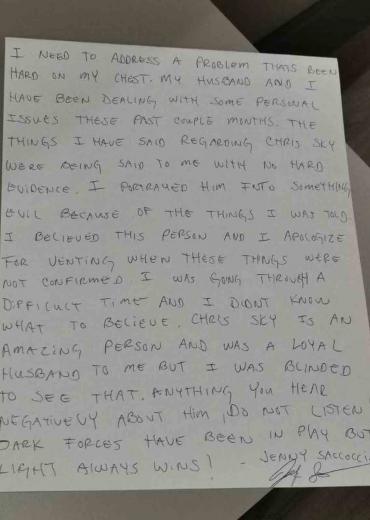 I NEED TO ADDRESS A PROBLEM THATS BEEN
HARD ON MY CHEST. MY HUSBAND AND I
HAVE BEEN DEALING WITH SOME PERSONAL
ISSUES THESE PAST COUPLE MONTHS. THE
THINGS I HAVE SAID REGARDING CHRIS SKY
WERE BEING SAID TO ME WITH NO HARD
EVIDENCE. I PORTRAYED HIM INTO SOMETHING
EVIL BECAUSE OF THE THINGS I WAS TOLD.
I BELIEVED THIS PERSON AND I APOLOGIZE
FOR VENTING WHEN THESE THINGS WERE
NOT CONFIRMED. I WAS GOING THROUGH A
DIFFICULT TIME AND I DIDNT KNOW
WHAT TO BELIEVE. CHRIS SKY IS AN
AMAZING PERSON AND WAS A LOYAL
HUSBAND TO ME BUT I WAS BLINDED
TO SEE THAT. ANYTHING YOU HEAR
NEGATIVELY ABOUT HIM, DO NOT LISTEN
DARK FORCES HAVE BEEN IN PLAY BUT
LIGHT ALWAYS WINS! - JENNY SACCOCCIA